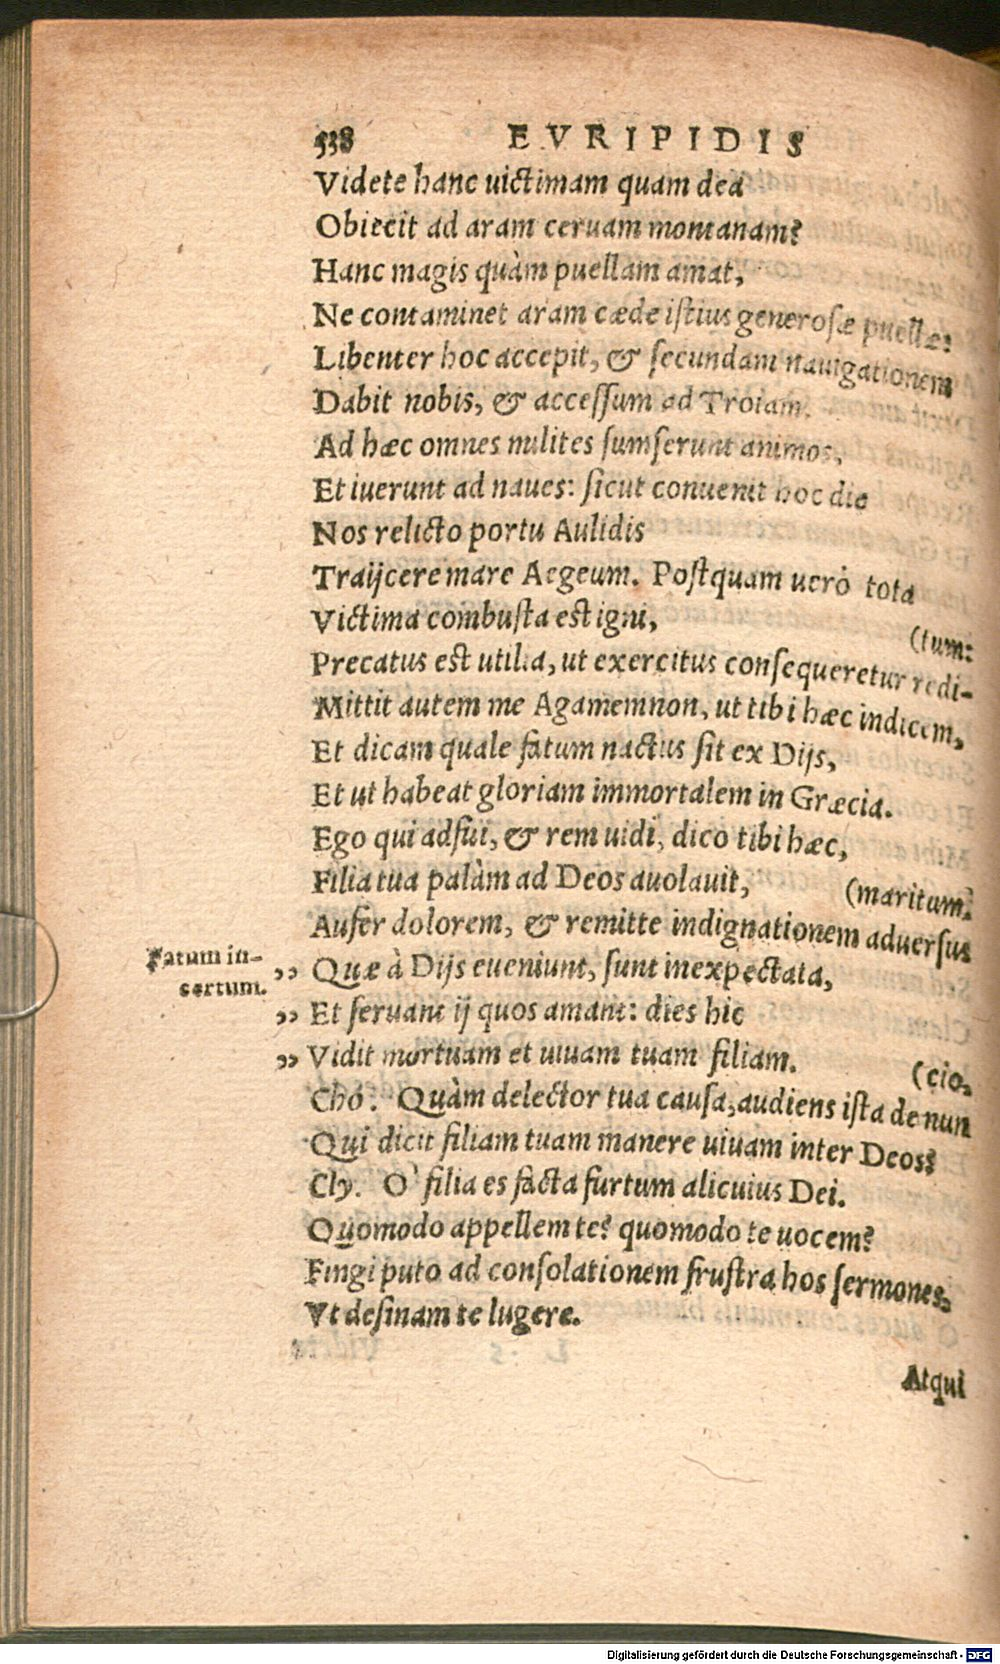 538 EVRIPIDIS
Videte hanc uictimam quam dea
Obiecit ad aram ceruam montanam?
Hanc magis quàm puellam amat,
Ne contaminet aram cæde istius generosæ puellæ:
Libenter hoc accepit, & secundam nauigationem
Dabit nobis, & accessum ad Troiam.
Ad hæc omnes milites sumserunt animos,
Et iuerunt ad naues: sicut conuenit hoc die
Nos relicto portu Aulidis
Traijcere mare Aegeum. Postquam uerò tota
Victima combusta est igni,
(tum:
Precatus est utilia, ut exercitus consequeretur redi-
Mittit autem me Agamemnon, ut tibi hæc indicem,
Et dicam quale fatum nactus sit ex Dijs,
Et ut habeat gloriam immortalem in Græcia.
Ego qui adfui, & rem uidi, dico tibi hæc,
Filia tua palàm ad Deos auolauit,
(maritum.
Aufer dolorem, & remitte indignationem aduersus
Fatum in-
certum.
„ Quæ à Dijs eueniunt, sunt inexpectata,
„ Et seruant ij quos amant: dies hic
„ Vidit mortuam et uiuam tuam filiam.
(cio,
Cho. Quàm delector tua causa, audiens ista de nun
Qui dicit filiam tuam manere uiuam inter Deos?
Cly. O' filia es facta furtum alicuius Dei.
Quomodo appellem te? quomodo te uocem?
Fingi puto ad consolationem frustra hos sermones,
Vt desinam te lugere.
Atqui
Digitalisierung gefördert durch die Deutsche Forschungsgemeinschaft - DFG